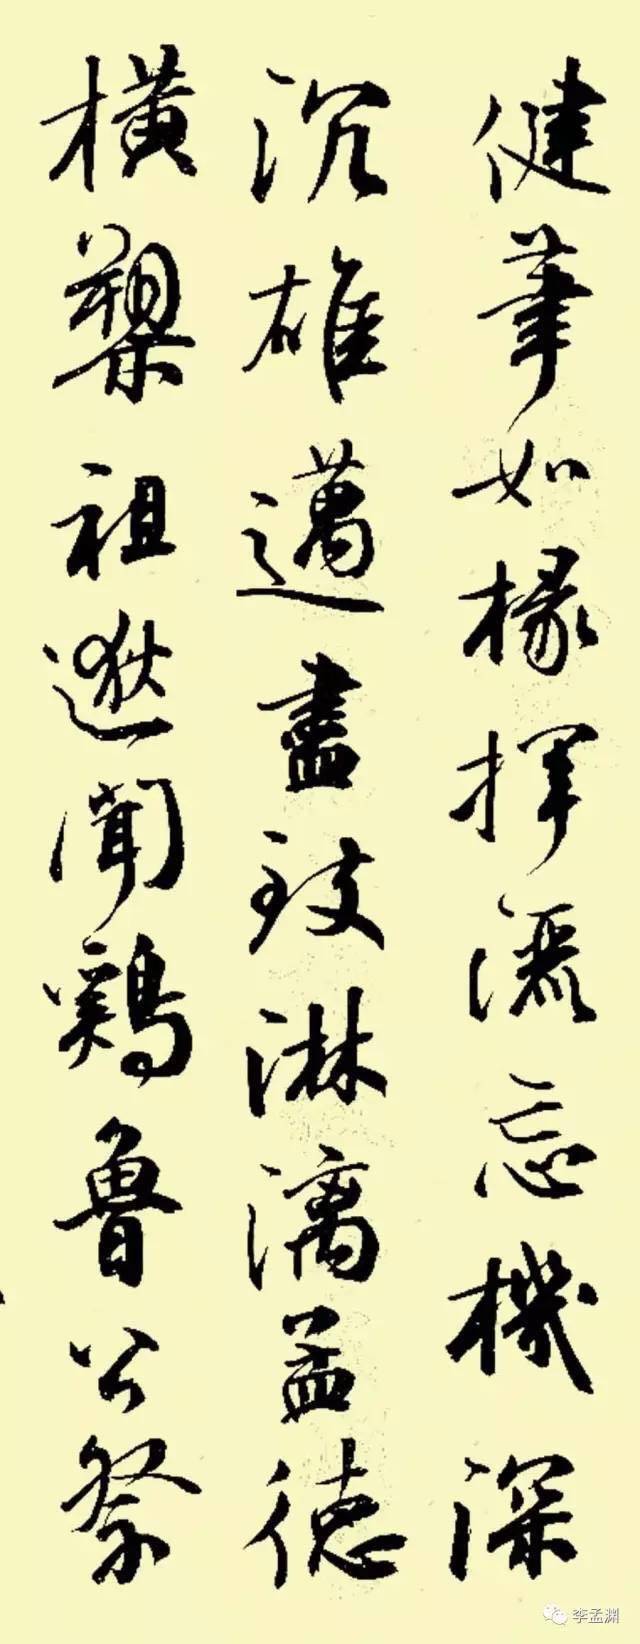 健筆如椽揮灑忘機深
沉雄邁盡致淋漓孟德
橫槊祖逖聞鷄魯公祭
李孟渊